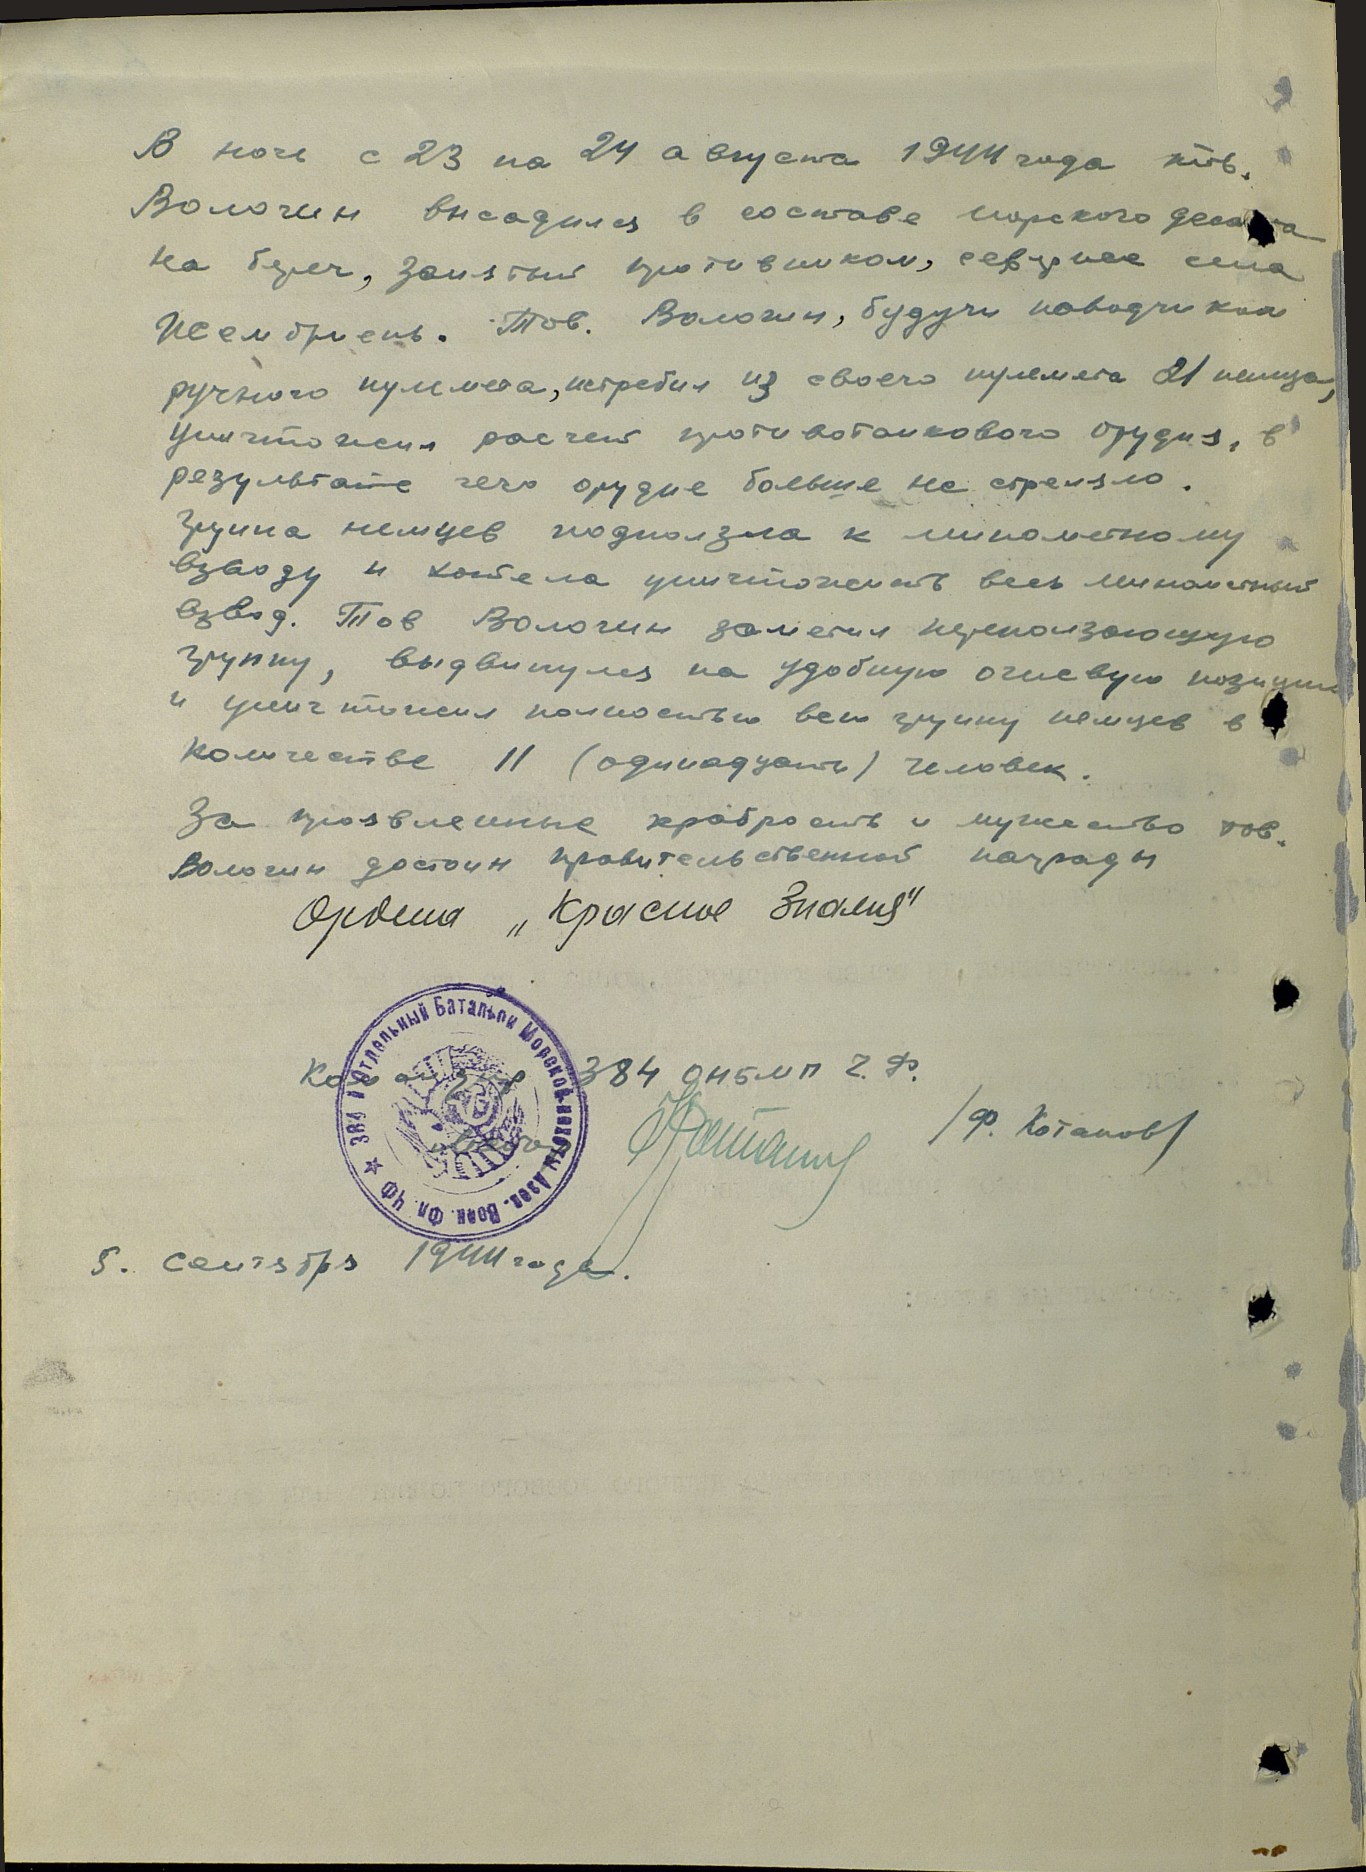 В ночь с 23 на 24 августа 1944 года тов.
Волочин высадился в составе морского десанта
на берег, занятый противником, севернее села
Жембриень. Тов. Волочин, будучи наводчиком
ручного пулемета, истребил из своего пулемета 21 немца,
уничтожил расчет противотанкового орудия, в
результате чего орудие больше не стреляло.
Группа немцев подползла к минометному
взводу и хотела уничтожить весь минометный
взвод. Тов Волочин заметил переползающую
группу, выдвинулся на удобную огневую позицию
и уничтожил полностью всю группу немцев в
количестве 11 (одинадцать) человек.
За проявленные храбрость и мужество тов.
Волочин достоин правительственной награды
Ордена „Красное Знамя"
Командир 384 ОНБМП Ч.Ф.
/Ф. Котанов/
5. сентября 1944 года.
★ 384 й Отдельный Батальон Морской пехоты Азов. Воен. Фл. ЧФ